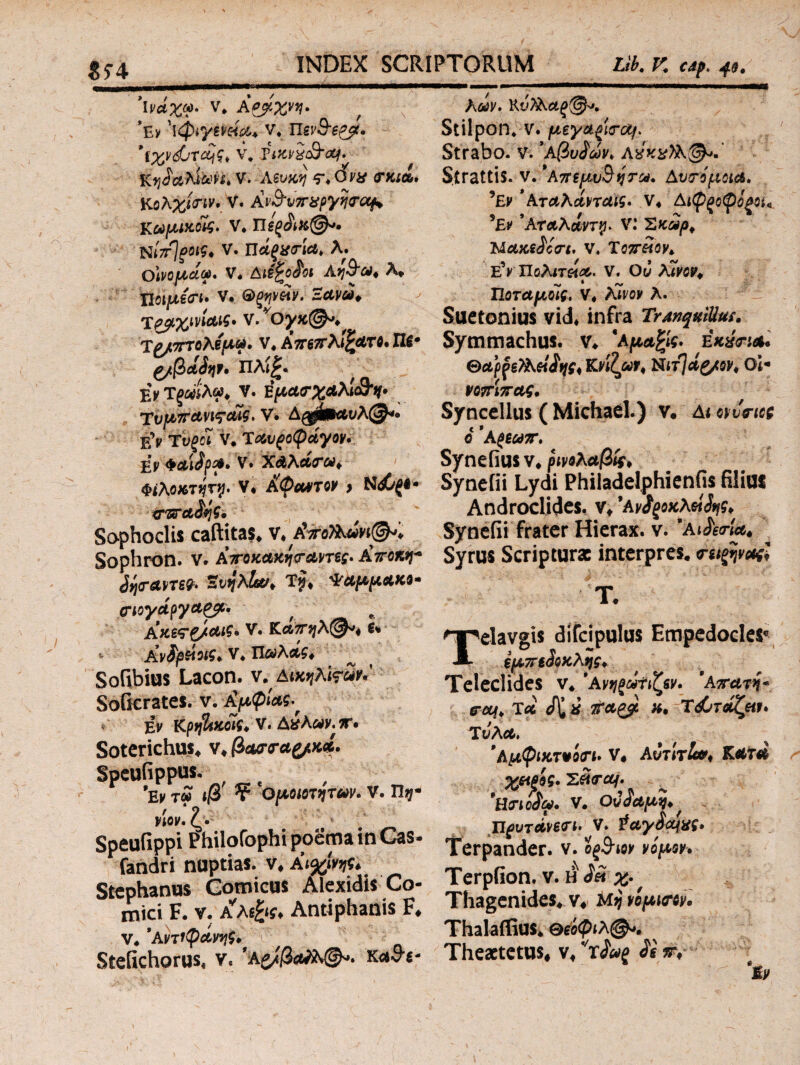 854 INDEX SCRIPTORUM Lib. V. cap. 40.
Ἰνάχῳ. v. Ἀράχνη.
Ἐν Ἰφιγενείᾳ. v. Πενθερά.
Ἰχνευταῖς. v. Ῥικνοῦσθαι.
Κηδαλίωνι. v. Λευκὴ ς. ὄνου σκιά.
Κολχίσιν. v. Ἀνθυπουργῆσαι.
Κωμικοῖς. v. Πέρδικος.
Νίπτροις. v. Παρουσία. λ.
Οἰνομάῳ. v. Διέξοδοι Λήθω. λ.
Ποιμέσι. v. Θρηνεῖν. Σανῶ.
Τραχινίαις. v. Ὄγκος.
Τριπτολέμῳ. v. Ἀπεπλίξατο. Πε-
ριβάδην. Πλίξ.
Ἐν Τρωΐλῳ. v. Ἐμασχαλίσθη.
Τυμπανισταῖς. v. Δράυλος.
Ἐν Τυροῖ v. Ταυροφάγον.
Ἐν Φαίδρᾳ. v. Χαλάσω.
Φιλοκτήτῃ. v. Ἄφωντον, Νευρο-
σπαδής.
Sophoclis castitas. v. Ἀπολλώνιος.
Sophron. v. Ἀποκακήσαντες. Ἀποκη-
δήσαντες. Συήλων. Τῇ. Ψαμμακο-
σιογάργαρα.
Ἀκεστρίαις. v. Κάπηλος. ε.
Ἀνδρείοις. v. Πωλάς.
Sosibius Lacon. v. Δικηλιστῶν.
Sosicrates. v. Ἀμφίας.
Ἐν Κρητικοῖς. v. Δούλων. π.
Soterichus. v. βασσαρικά.
Speusippus.
Ἐν τῷ ιβʹ τ Ὁμοιοτήτων. v. Πη-
νίον. ζ.
Speusippi Philosophi poëma in Cas-
sandri nuptias. v. Αἰσχίνης.
Stephanus Comicus Alexidis Co-
mici F. v. Ἄλεξις. Antiphanis F.
v. Ἀντιφάνης.
Stesichorus. v. Ἀρίβαλλος. Καθε-
λών. Κύλλαρος.
Stilpon. v. μεγαρίσαι.
Strabo. v. Ἀβυδών. Λούκουλλος.
Strattis. v. Ἀπεμυθήσω. Δυσόμοια.
Ἐν Ἀταλάνταις. v. Διφροφόροι.
Ἐν Ἀταλάντῃ. v. Σκώρ.
Μακεδόσι. v. Τοπεῖον.
Ἐν Πολιτείᾳ. v. Οὐ λίνον.
Ποταμοῖς. v. λίνον λ.
Suetonius vid. infra Tranquillus.
Symmachus. v. Ἁμαξίς. Ἑκούσια.
Θαρρελείδης. Κνίζων. Νιττάριον. Οἰ-
νοπίπας.
Syncellus (Michael.) v. Διονύσιος
ὁ Ἀρεωπ.
Synesius v. ῥινολαβίς.
Synesii Lydi Philadelphiensis filius
Androclides. v. Ἀνδροκλείδης.
Synesii frater Hierax. v. Αἰδεσία.
Syrus Scripturæ interpres. σειρῆνας.
T.
Telavgis discipulus Empedocles
ἐμπεδοκλῆς.
Teleclides v. Ἀνηρώτιζεν. Ἀπατή-
σαι. Τὰ δʹ οὐ παρὰ κ. Τευτάζειν.
Τύλα.
Ἀμφικτυόσι. v. Αὐτίτην. Κατὰ
χειρός. Σεῖσαι.
Ἡσιόδῳ. v. Οὐδαμῇ.
Πρυτάνεσι. v. Ῥαγδαίους.
Terpander. v. ὄρθιον νόμον.
Terpsion. v. Εἰ δεῖ χ.
Thagenides. v. Μὴ νόμισον.
Thalassius. Θεόφιλος.
Theætetus. v. Ὕδωρ δὲ π.
Ἐν